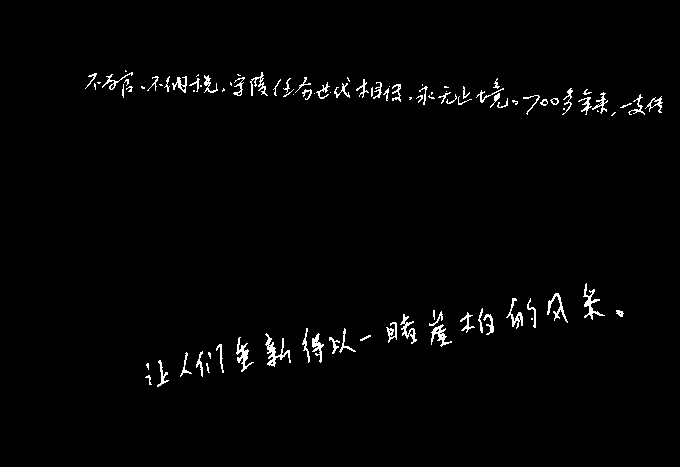 不为官、不纳税，守陵任务世代相传，永无止境。700多年来，一支传
让人们重新得以一睹崖柏的风采。